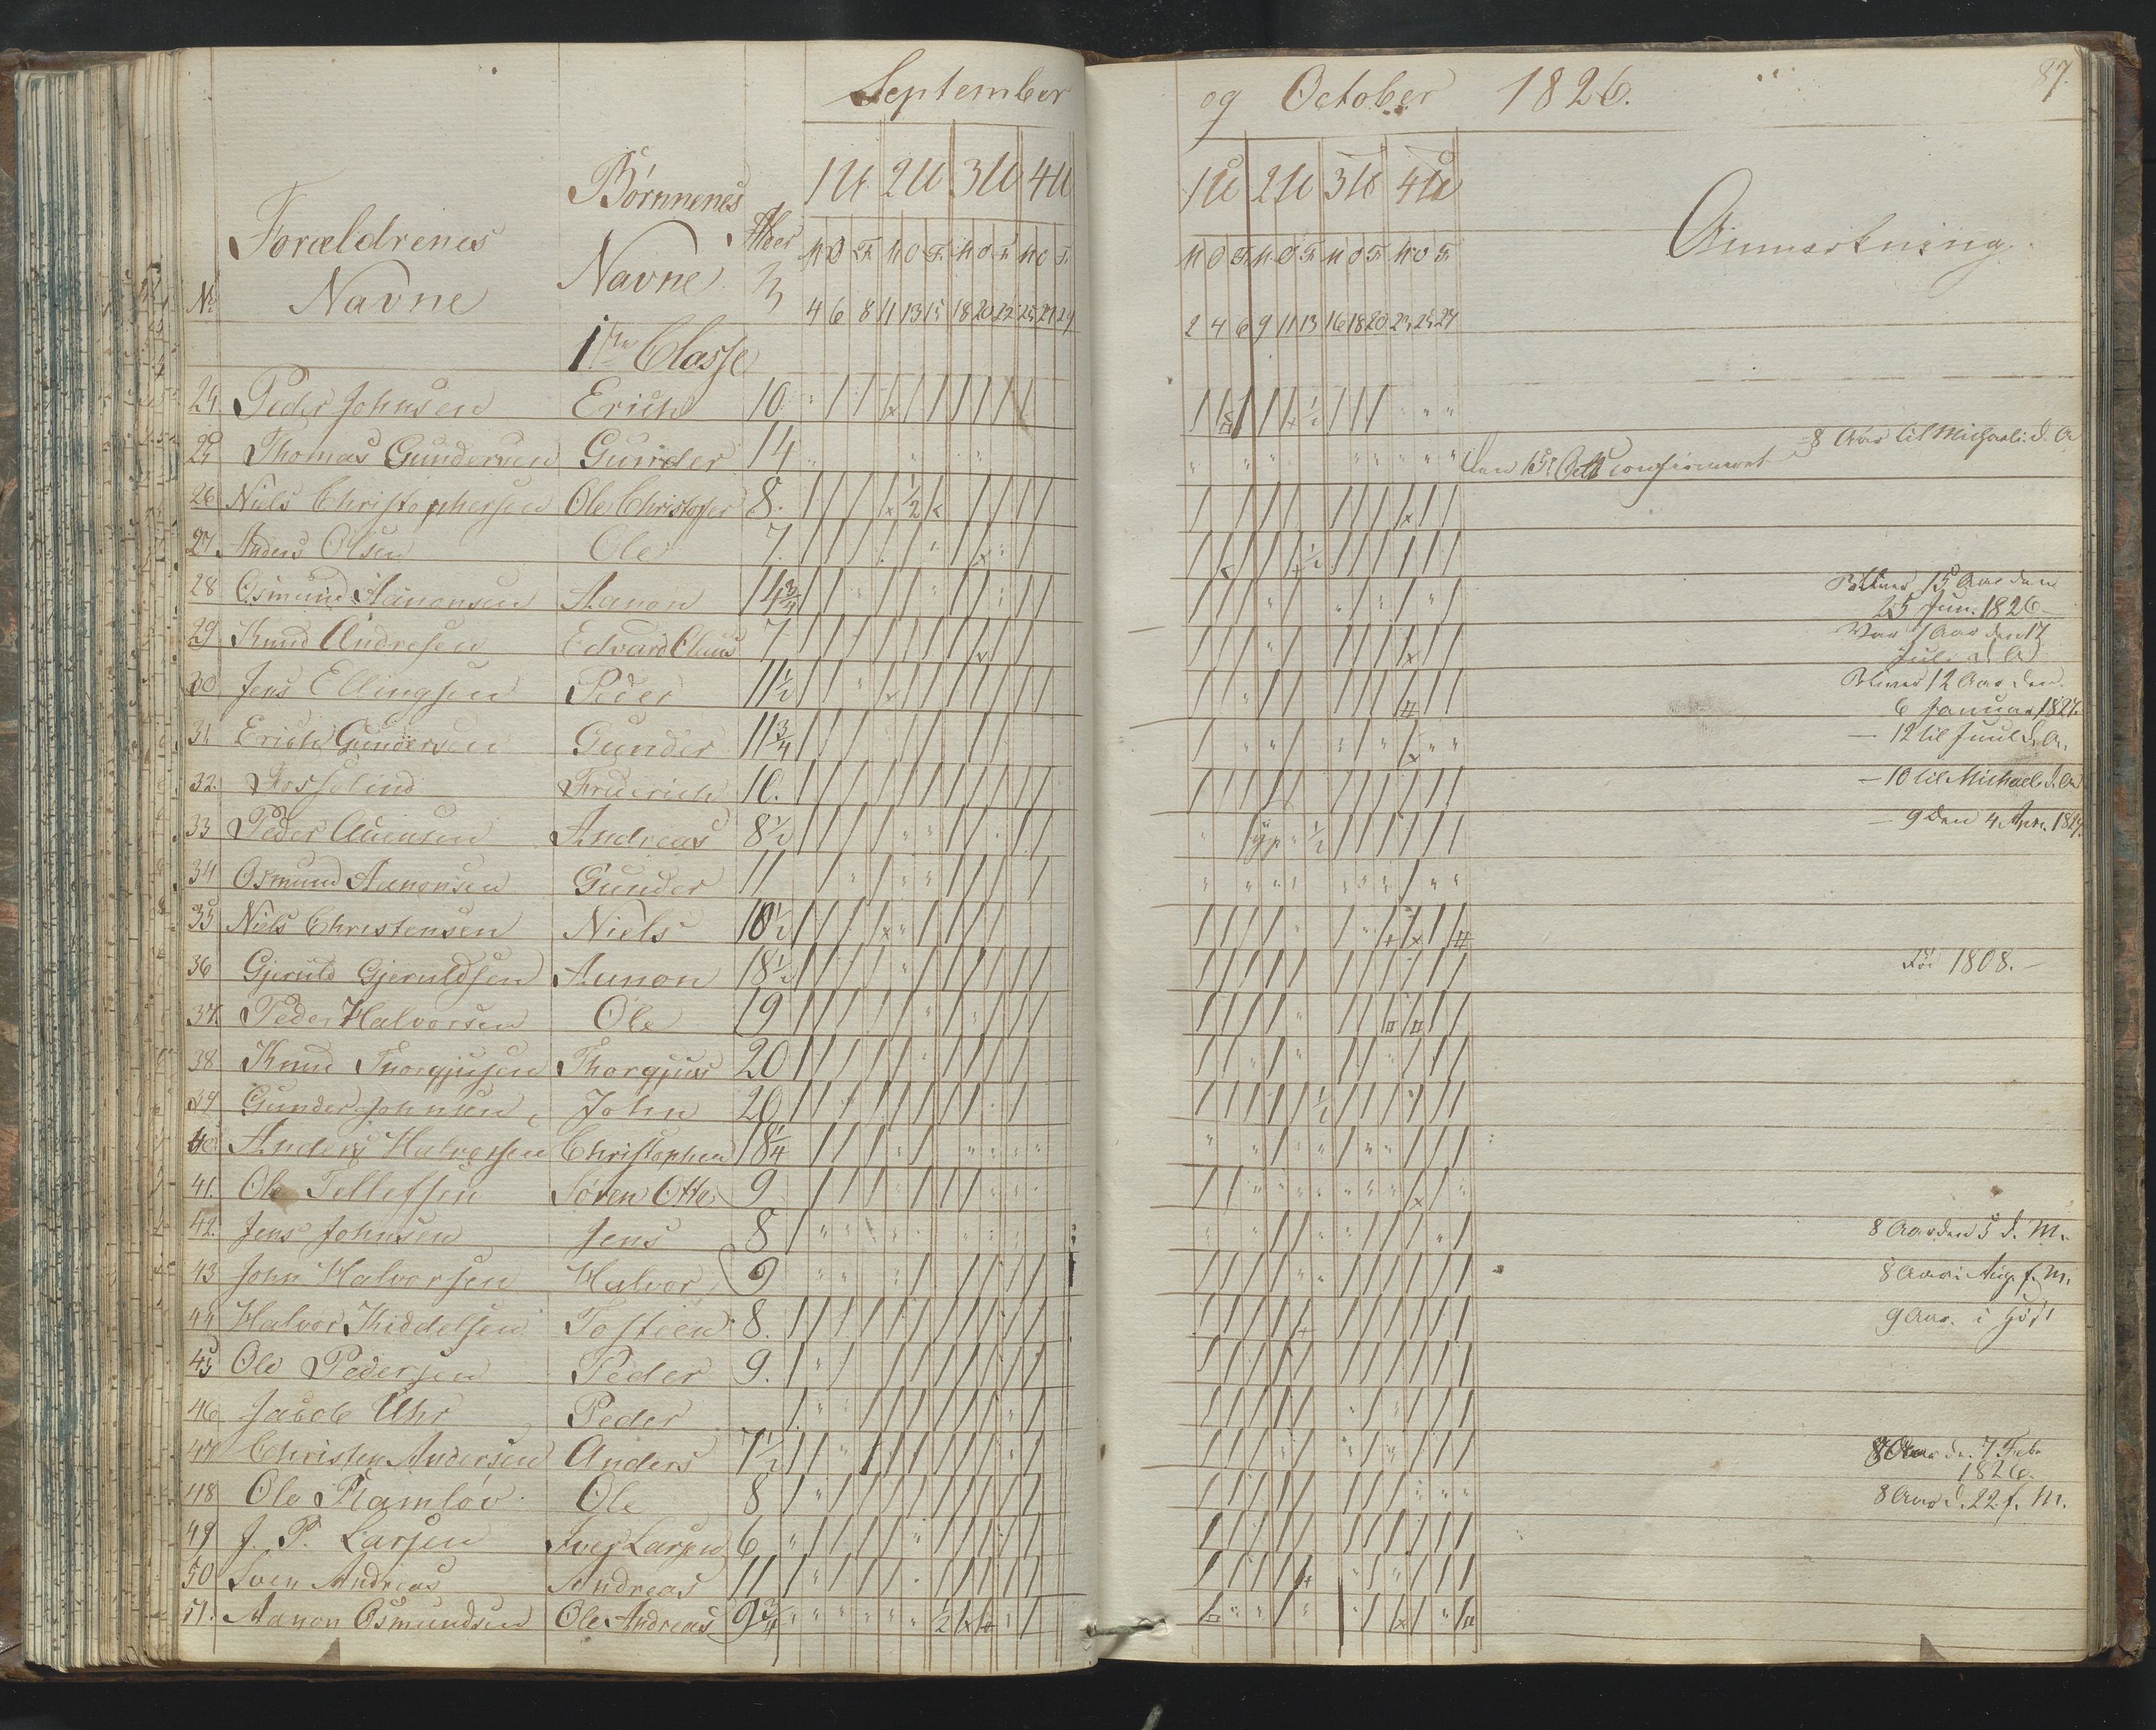 September og October 1826. 87.
Forældrenes Børnnenes
Navne Navne
No
1U 2U 3U 4U 1U 2U 3U 4U
Anmærkning.
M O F M O F M O F M O F M O F M O F M O F M O F
4 6 8 11 13 15 18 20 22 25 27 29 2 4 6 9 11 13 16 18 20 23 25 27
1ste Classe
24 Peder Johnsen Erich 10
25 Thomas Gundersen Gunder 14 den 15de Octb confirmeret
8 Aar til Michaeli d. A
26 Niels Christophersen Ole Christopher 8.
27 Anders Olsen Ole 7.
28 Osmund Aanonsen Aanon 14 3/4 Bliver 15 Aar den
25 Jun. 1826
29 Knud Andresen Edvard Claus 7 Var 7 Aar den 17
Juli d. A
30 Jens Ellingsen Peder 11 1/2 Bliver 12 Aar den
6 Januar 1827.
31 Erich Gundersen Gunder 11 3/4 — 12 til Juul d. A.
32. Frederich 10. — 10 til Michaeli d. A
33 Peder Andreas 8 1/2 — 9 den 4. Apr. 1827.
34 Osmund Aanonsen Gunder 11
35 Niels Christensen Niels 10 1/2
36 Gjeruld Gjeruldsen Aanon 18 1/2 1808. —
37. Peder Halvorsen Ole 19
38 Knud Thorgjusen Thorgjus 20
39 Gunder Johnsen John 20
40. Anders Halvorsen Christopher 18 1/4
41. Ole Tellefsen Søren Otto 9
42. Jens Johnsen Jens 8 8 Aar den 5 d. M.
43 John Halvorsen Halvor 9 8 Aar i Aug. f. M.
44 Halvor Kiddelsen Tosteen 8. 9 Aar. i Høst
45 Ole Pedersen Peder 9.
46 Jacob Uhr Peder
47 Christen Andersen Anders 7 1/2 8 Aar d. 7 Febr
1826.
48 Ole Ole 8 8 Aar d. 22 f. M.
49 J. P. Larsen Iver Larsen 6
50 Sven Andreas Andreas 11
51. Aanon Osmundsen Ole Andreas 9 3/4